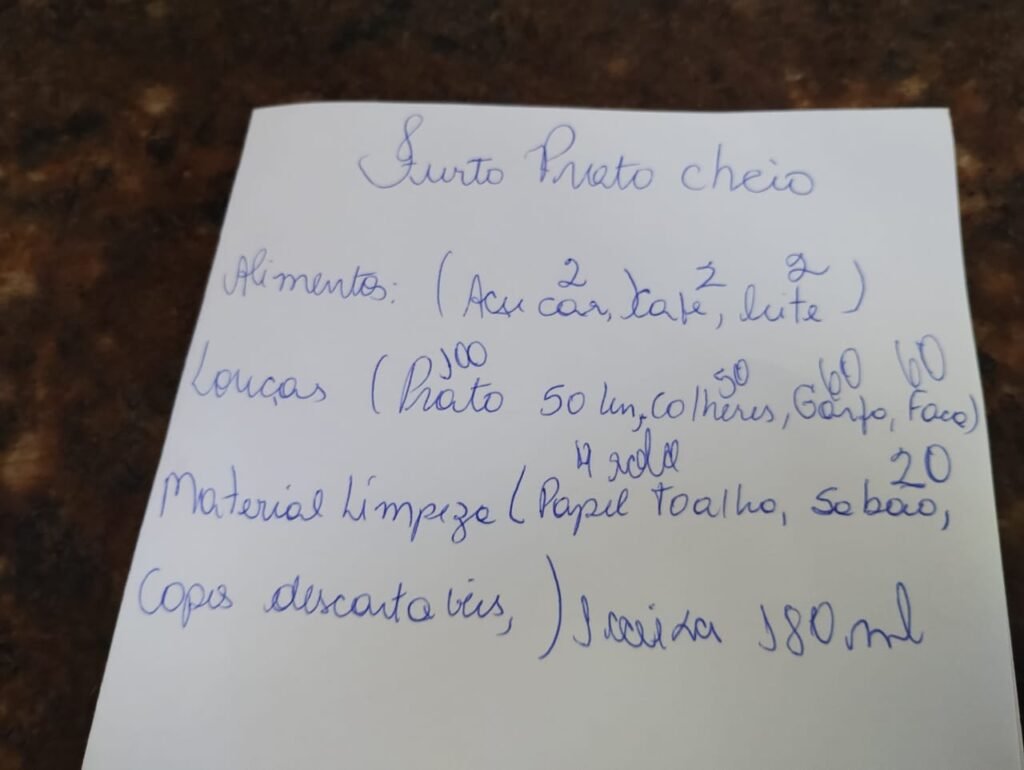 Furto Prato cheio
2 2 2
Alimentos: (Açucar, Café, leite)
100 50 60 60
Louças (Prato 50 un, Colheres, Garfo, Faca)
4 20
Material Limpeza (Papel toalha, Sabão,
Copos descartaveis,) 1 caixa 180 ml